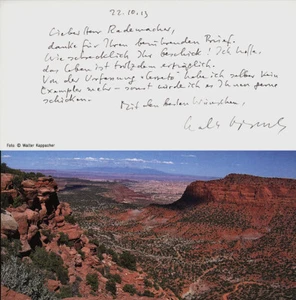 22.10.13
Lieber Herr Rademacher,
danke für Ihren berührenden Brief.
Wie schrecklich Ihr Geschick! Ich hoffe,
das Leben ist trotzdem erträglich.
Von der Verfassung habe ich selber kein
Exemplar mehr – sonst würde ich es Ihnen gerne
schicken.
Mit den besten Wünschen,
Foto © Walter Kappacher